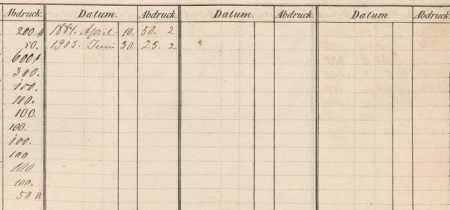 Abdruck. Datum. Abdruck. Datum. Abdruck. Datum. Abdruck
200 1884. April 10. 50. 2
50. 1903. Juni 30. 25. 2
600
300.
100.
100.
100
100.
100.
100
100
100.
50